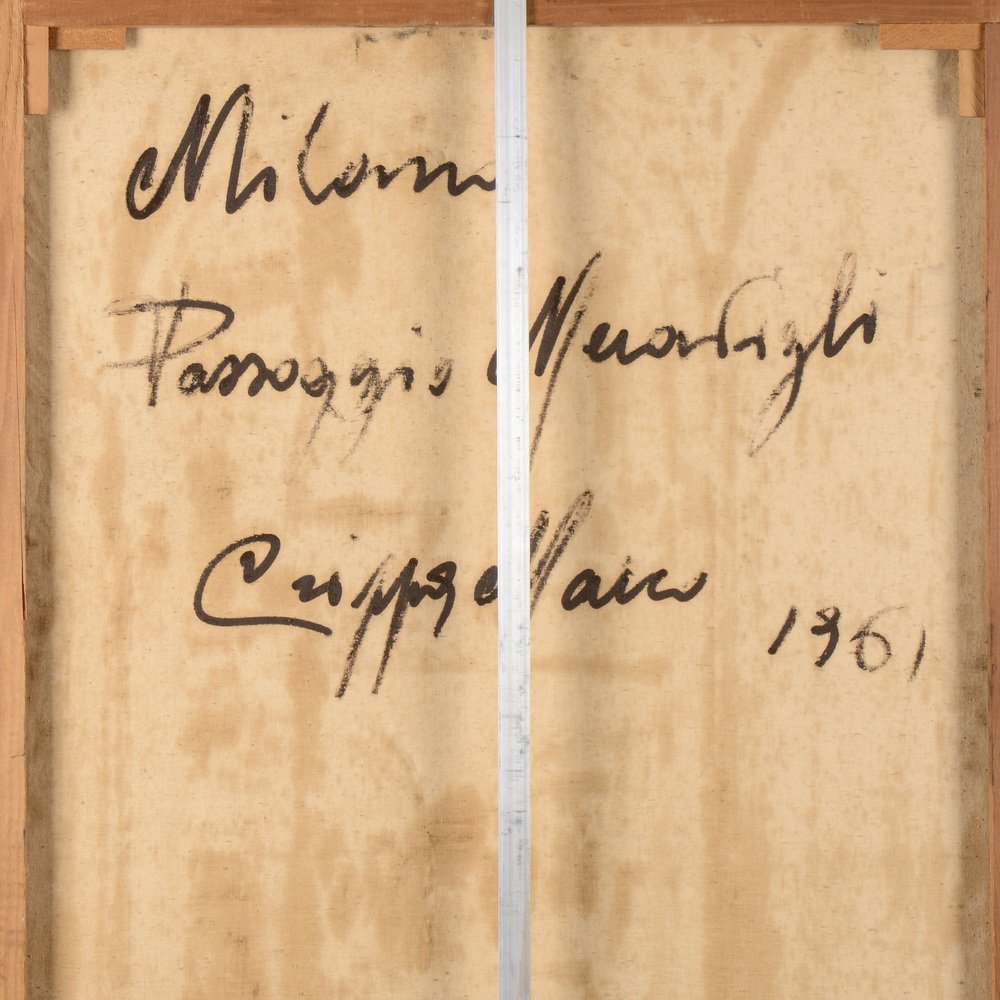 Milano
Passaggio Meravigli
Crippa Marco 1961